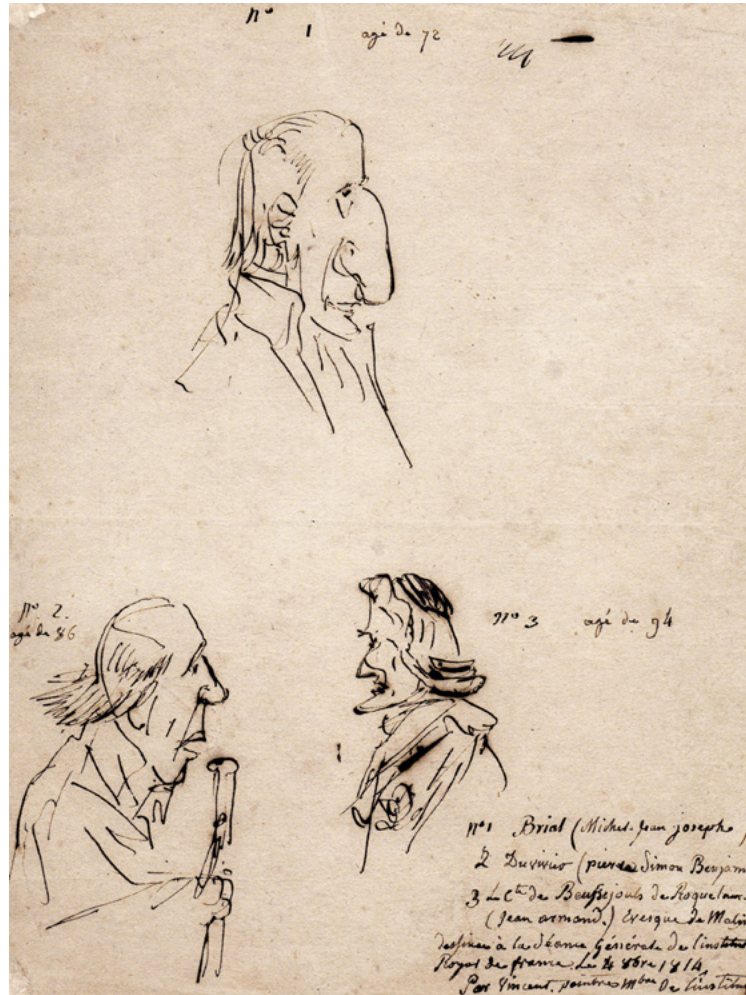 n°
1 agé de 72
n° 2.
agé de 86
n° 3 agé de 94
n° 1 Brial (Michel Jean joseph
2 Duvivier (pierre Simon Benjam
3 Le Cte de Beussejouls de Roquelaure
(Jean armand.) Evesque de Malin
dessinés à la Séance générale de l'institut
Royal de france. Le 4 8bre 1814
Par Vincent, peintre mbre De l'institu